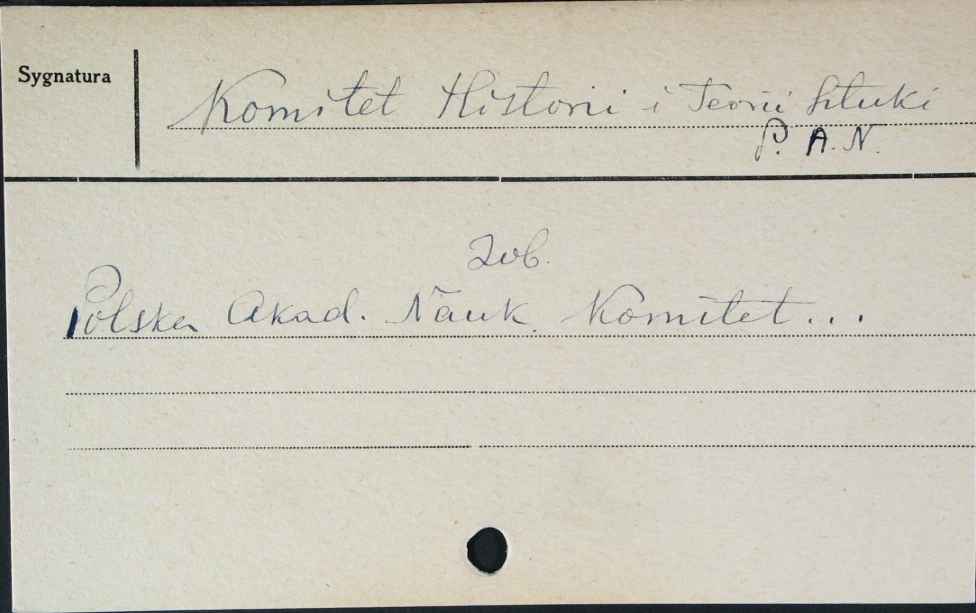 Sygnatura
Komitet Historii i Teorii Sztuki
P. A. N.
Zob.
Polska Akad. Nauk. Komitet...